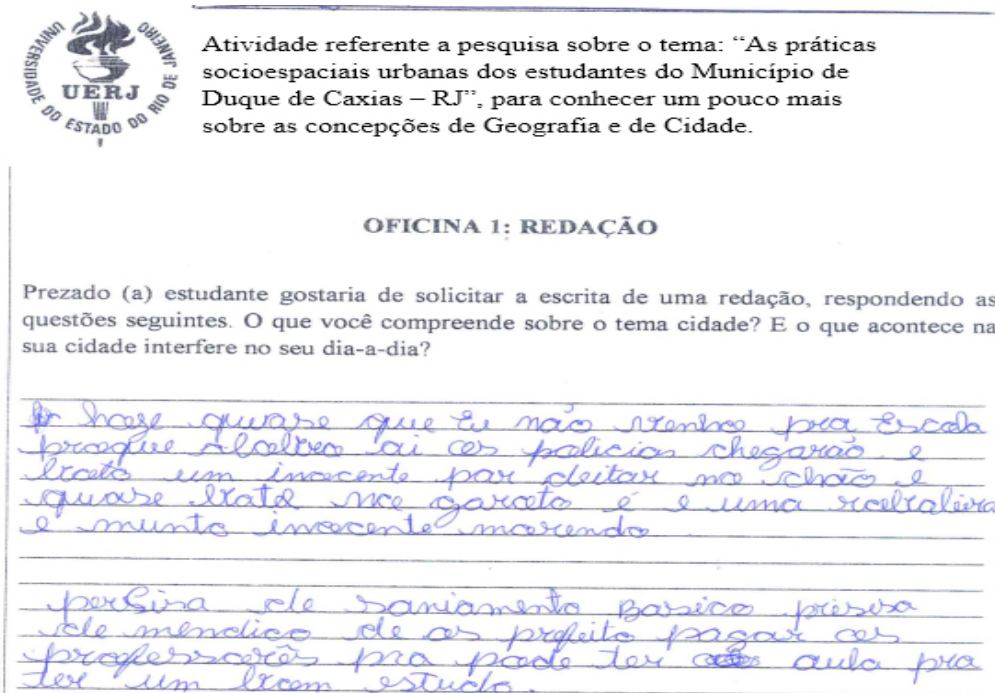 UNIVERSIDADE DO ESTADO DO RIO DE JANEIRO
UERJ
Atividade referente a pesquisa sobre o tema: “As práticas
socioespaciais urbanas dos estudantes do Município de
Duque de Caxias – RJ”, para conhecer um pouco mais
sobre as concepções de Geografia e de Cidade.
OFICINA 1: REDAÇÃO
Prezado (a) estudante gostaria de solicitar a escrita de uma redação, respondendo as
questões seguintes. O que você compreende sobre o tema cidade? E o que acontece na
sua cidade interfere no seu dia-a-dia?
hoze quase que Eu não venho pra Escola
proque ai os policias chegarão e
um inocente par deitar no chão e
quase no garoto é e uma
e munto inocente morendo
de saniamento Basico presisa
de mendico de os prefeito pagar os
professorês pra pode ter aula pra
ter um bom estudo.